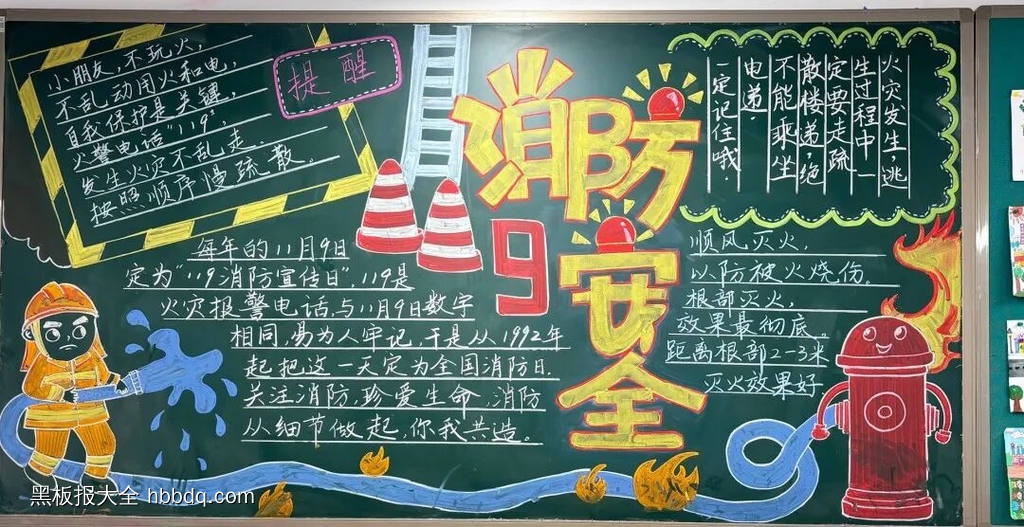 小朋友,不玩火,
不乱动用火和电,
自我保护是关键,
火警电话"119",
发生火灾不乱走,
按照顺序慢疏散。
提醒
消防
119
安全
火灾发生,逃
生过程中一
定要走疏
散楼递,绝
不能乘坐
电递,
一定记住哦.
每年的11月9日
定为"119消防宣传日",119是
火灾报警电话,与11月9日数字
相同,易为人牢记,于是从1992年
起把这一天定为全国消防日.
关注消防,珍爱生命,消防
从细节做起,你我共造。
顺风灭火,
以防被火烧伤。
根部灭火,
效果最彻底。
距离根部2-3米
灭火效果好
黑板报大全 hbbdq.com